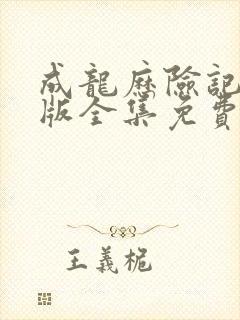 成龍歷險記
版全集免費
王義桅